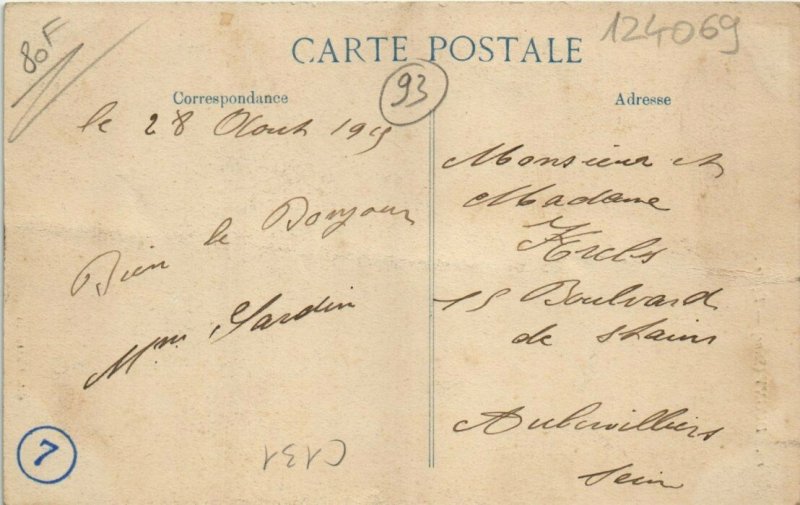 80F
124069
CARTE POSTALE
93
Correspondance
le 28 Aout 1915
Bien le Bonjour
Mme Jardin
7
C131
Adresse
Monsieur et
Madame
Krebs
15 Boulvard
de stains
Aubervilliers
Sein